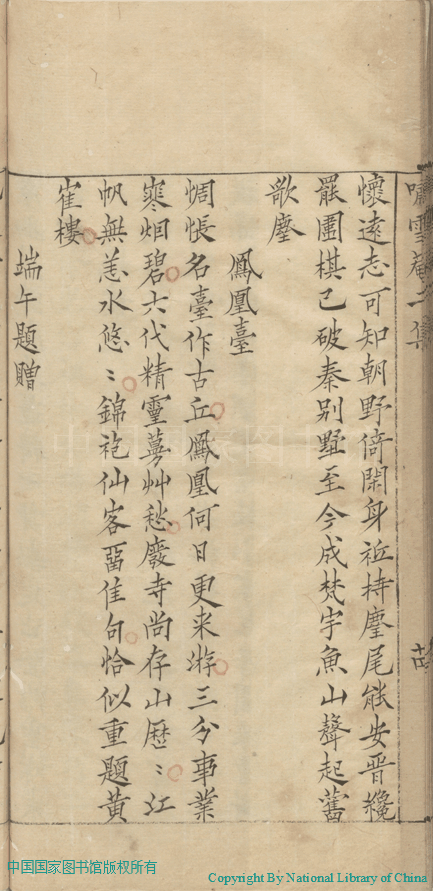 嘯雪菴二集
懷遠志可知朝野倚閑身祗持麈尾能安晉纔
罷圍棋已破秦別墅至今成梵宇魚山聲起舊
歌塵
鳳凰臺
惆悵名臺作古丘鳳凰何日更来游三分事業
寒烟碧六代精靈蔓艸愁廢寺尚存山歷〻江
帆無恙水悠〻錦袍仙客畱佳句恰似重題黃
崔樓
端午題贈
中国国家图书馆
中国国家图书馆版权所有
Copyright By National Library of China